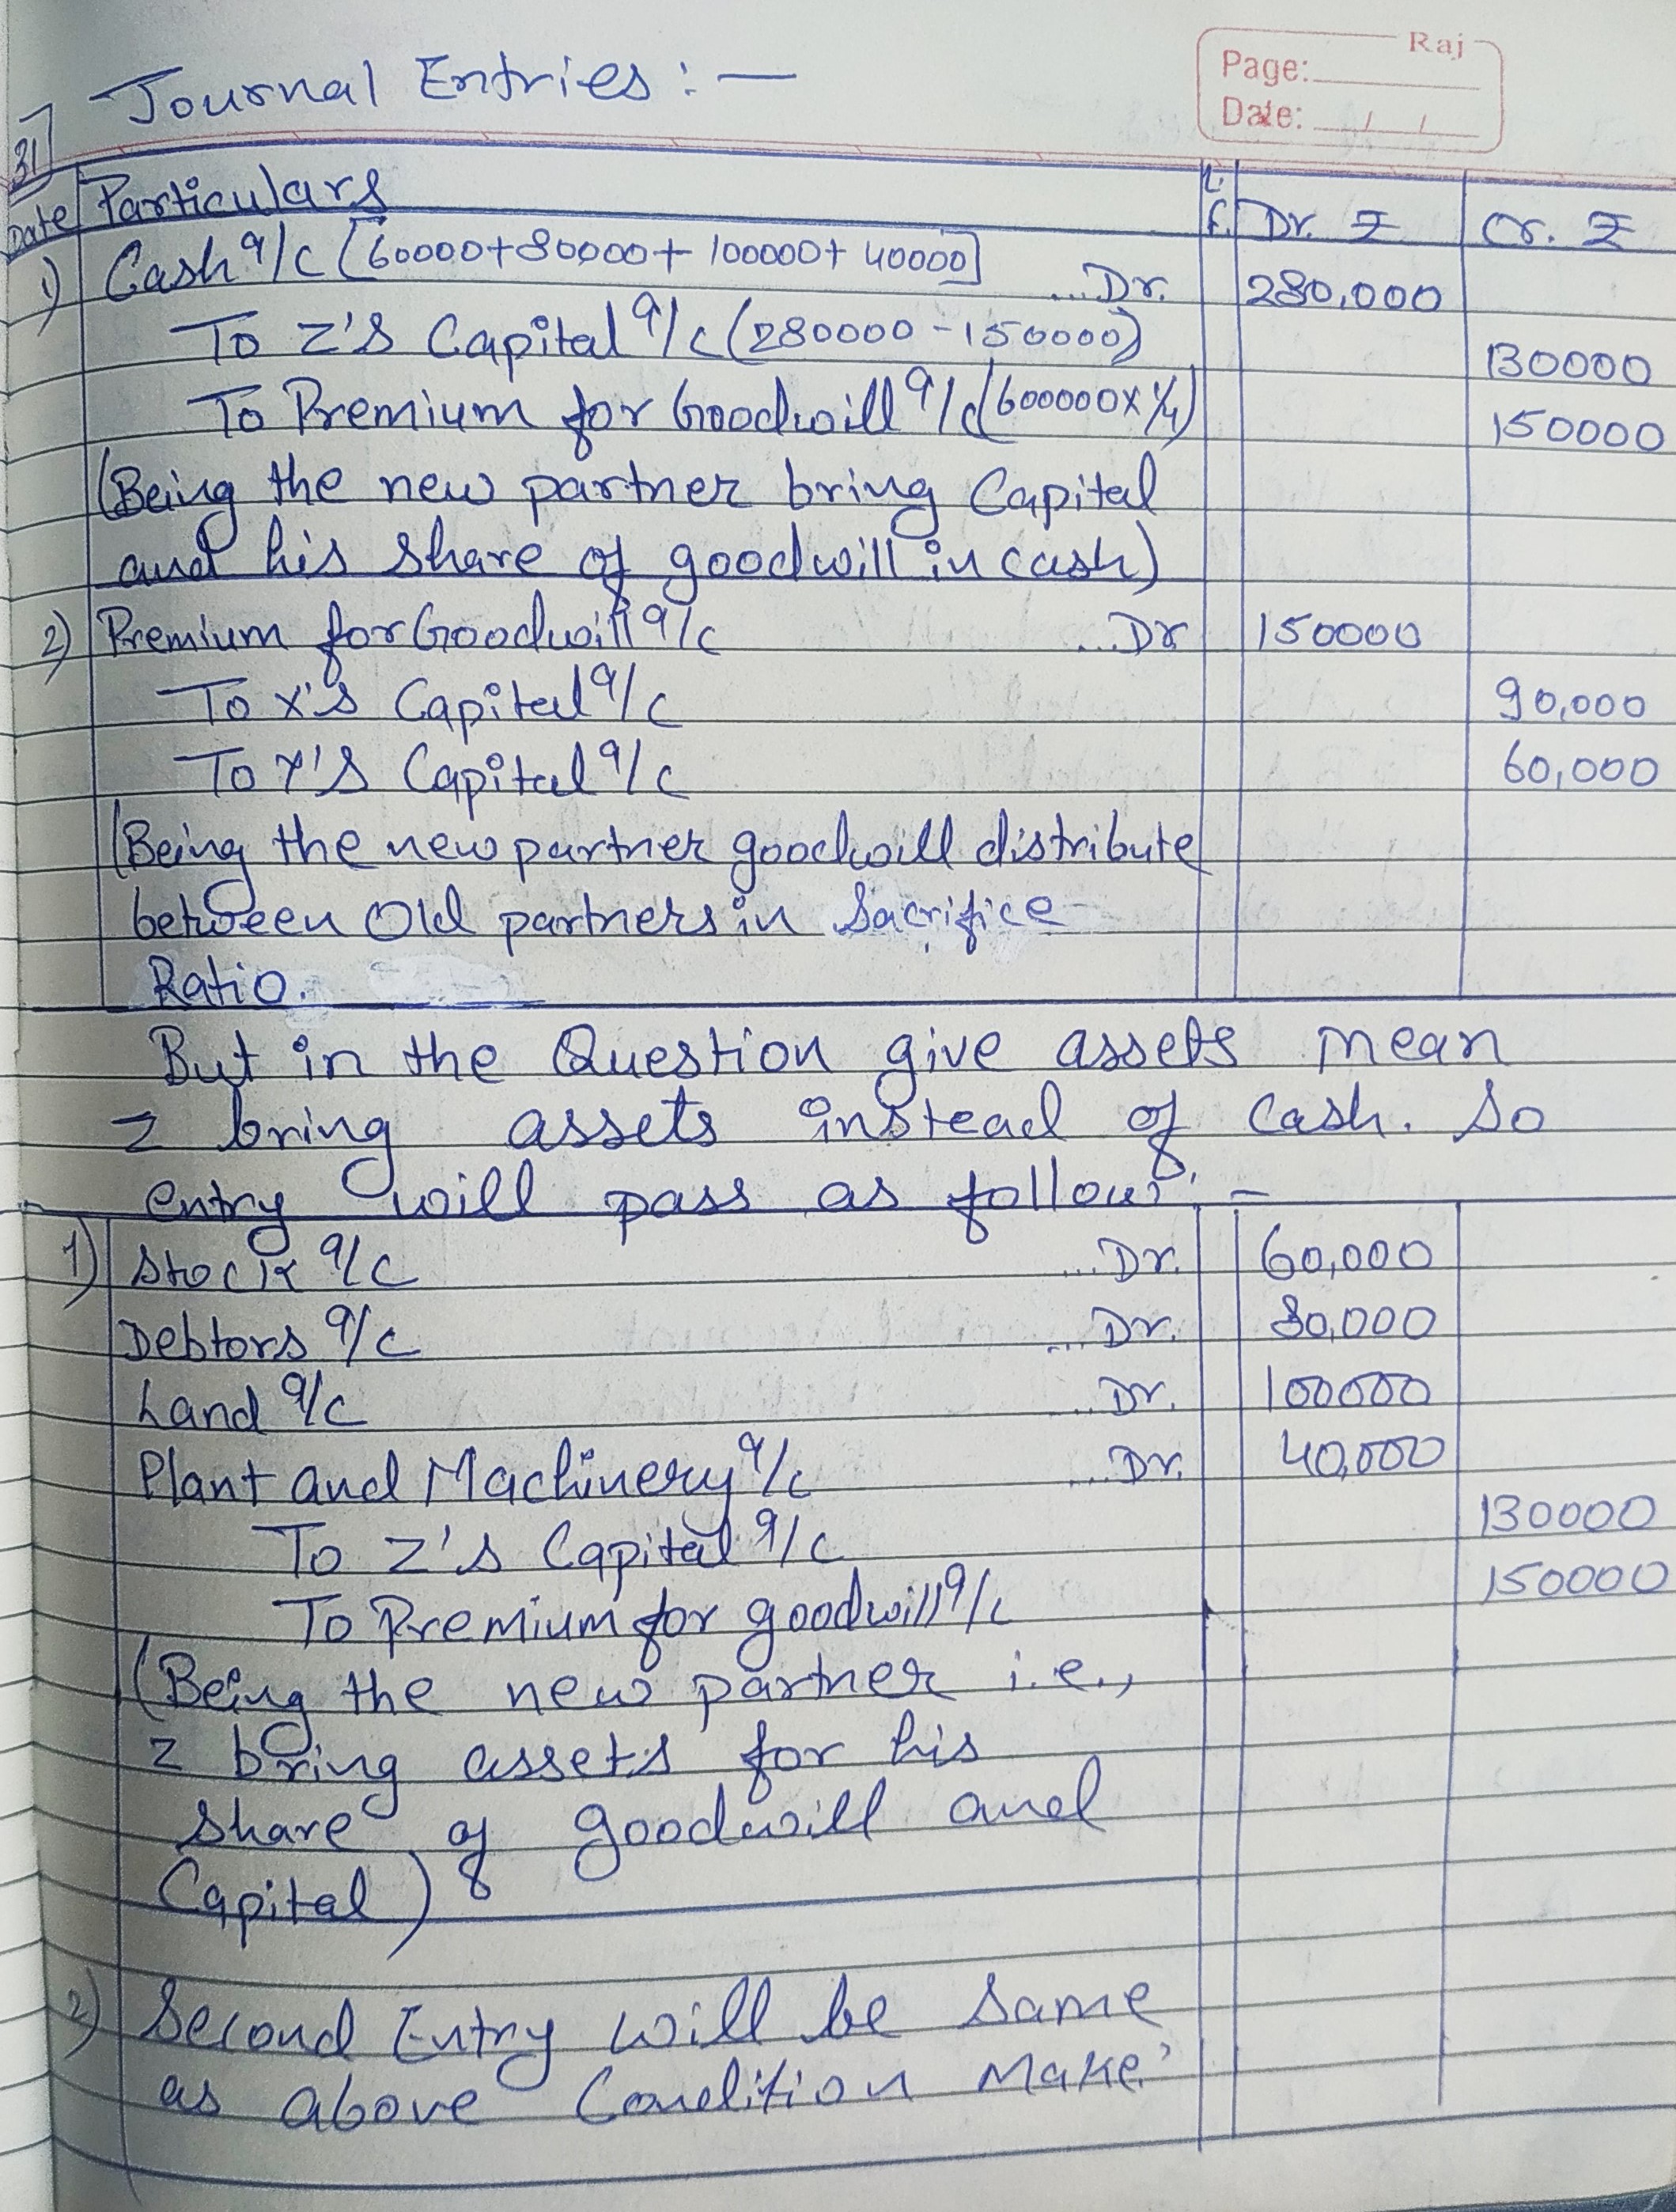 Raj
Page:
Date: / /
Journal Entries :—
31
Date Particulars L.F. Dr. ₹ Cr. ₹
1) Cash a/c [60000+80000+100000+40000] ...Dr. 280,000
To Z's Capital a/c (280000-150000) 130000
To Premium for Goodwill a/c (600000×1/4) 150000
(Being the new partner bring Capital
and his share of goodwill in cash)
2) Premium for Goodwill a/c ...Dr 150000
To X's Capital a/c 90,000
To Y's Capital a/c 60,000
(Being the new partner goodwill distribute
between Old partners in Sacrifice
Ratio.
But in the Question give assets mean
Z bring assets instead of Cash. So
entry will pass as follows:-
1) Stock a/c ...Dr. 60,000
Debtors a/c ...Dr. 80,000
Land a/c ...Dr. 100000
Plant and Machinery a/c ...Dr. 40,000
To Z's Capital a/c 130000
To Premium for goodwill a/c 150000
(Being the new partner i.e.,
Z bring assets for his
share of goodwill and
Capital)
2) Second Entry will be Same
as above Condition Make.